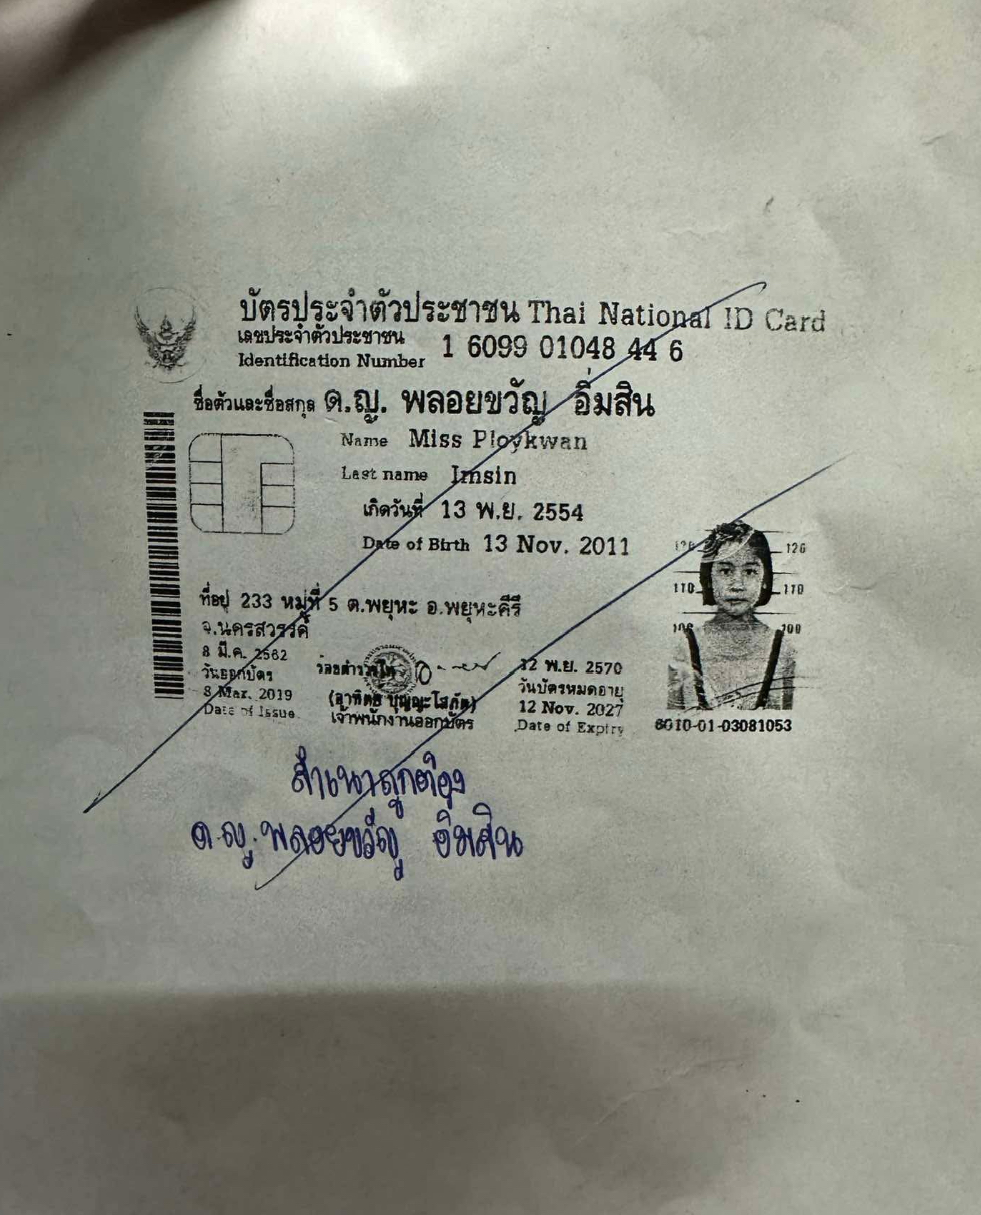 บัตรประจำตัวประชาชน Thai National ID Card
เลขประจำตัวประชาชน
Identification Number 1 6099 01048 44 6
ชื่อตัวและชื่อสกุล ด.ญ. พลอยขวัญ อิ่มสิน
Name Miss Ploykwan
Last name Imsin
เกิดวันที่ 13 พ.ย. 2554
Date of Birth 13 Nov. 2011
ที่อยู่ 233 หมู่ที่ 5 ต.พยุหะ อ.พยุหะคีรี
จ.นครสวรรค์
8 มี.ค. 2562
วันออกบัตร
8 Mar. 2019
Date of Issue
เจ้าพนักงานออกบัตร
12 พ.ย. 2570
วันบัตรหมดอายุ
12 Nov. 2027
Date of Expiry
120 120
110 110
100 100
6010-01-03081053
สำเนาถูกต้อง
ด.ญ.พลอยขวัญ อิ่มสิน